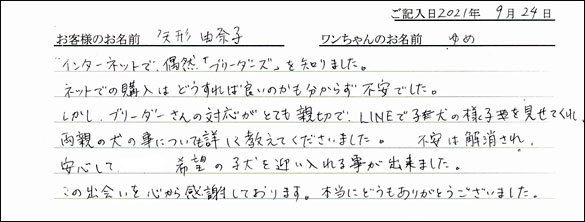 ご記入日2021年 9月24日
お客様のお名前 矢形 由奈子 ワンちゃんのお名前 ゆめ
インターネットで、偶然、「ブリーダーズ」を知りました。
ネットでの購入は どうすれば良いのかも分からず 不安でした。
しかし、ブリーダーさんの対応がとても 親切で、LINEで子犬の様子を見せてくれ、
両親の犬の事についても詳しく教えてくださいました。 不安は解消され、
安心して 希望の子犬を迎い入れる事が出来ました。
この出会いを心から感謝しております。本当にどうもありがとうございました。